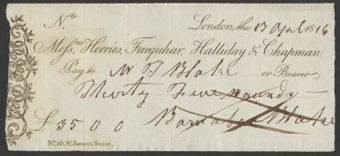 No. London, the 13 April 1816
Messrs. Herries, Farquhar, Halliday & Chapman,
Pay to Mr T Blake or Bearer
Thirty Five pounds
£35 0 0 Barnaby Blake
No. 16, St. James's Street.